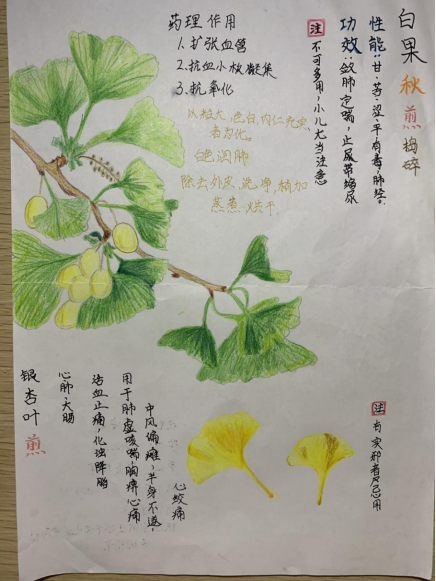 白果 秋 煎 捣碎
性能:甘、苦、涩、平有毒,肺经。
功效:敛肺定喘,止尿带缩尿
注 不可多用,小儿尤当注意
药理作用
1.扩张血管
2.抗血小板凝集
3.抗氧化
以粒大,色白,肉仁充实
者为优。
白色润肺
除去外皮,洗净,稍加
蒸煮 烘干
注 有实邪者忌用
银杏叶 煎
心肺、大肠
活血止痛,化浊降脂
用于肺虚咳喘,胸痹心痛
中风偏瘫,半身不遂,
心绞痛